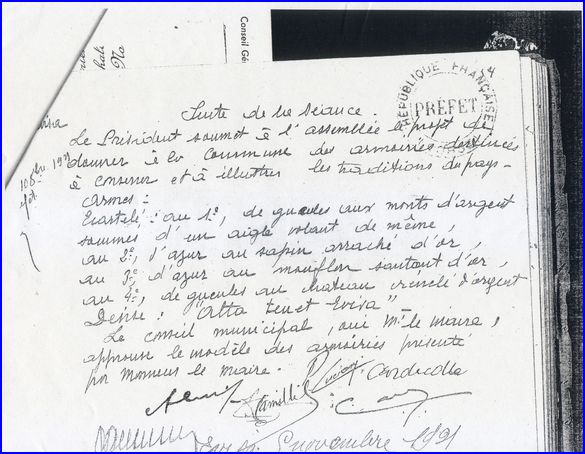 Conseil Gé
RÉPUBLIQUE FRANÇAISE
PRÉFET
Suite de la Séance.
Le Président soumet à l'assemblée le projet de
donner à la Commune des armoiries destinées
à conserver et à illustrer les traditions du pays-
Armes:
Ecartelé: au 1e, de gueules aux monts d'argent
sommés d'un aigle volant de même,
au 2e, d'azur au sapin arraché d'or,
au 3e, d'azur au mouflon sautant d'or,
au 4e, de gueules au chateau crénelé d'argent
Devise: "Alta tenet Evisa"
Le conseil municipal, oui Mr le maire,
approuve le modèle des armoiries présenté
par monsieur le maire.
novembre